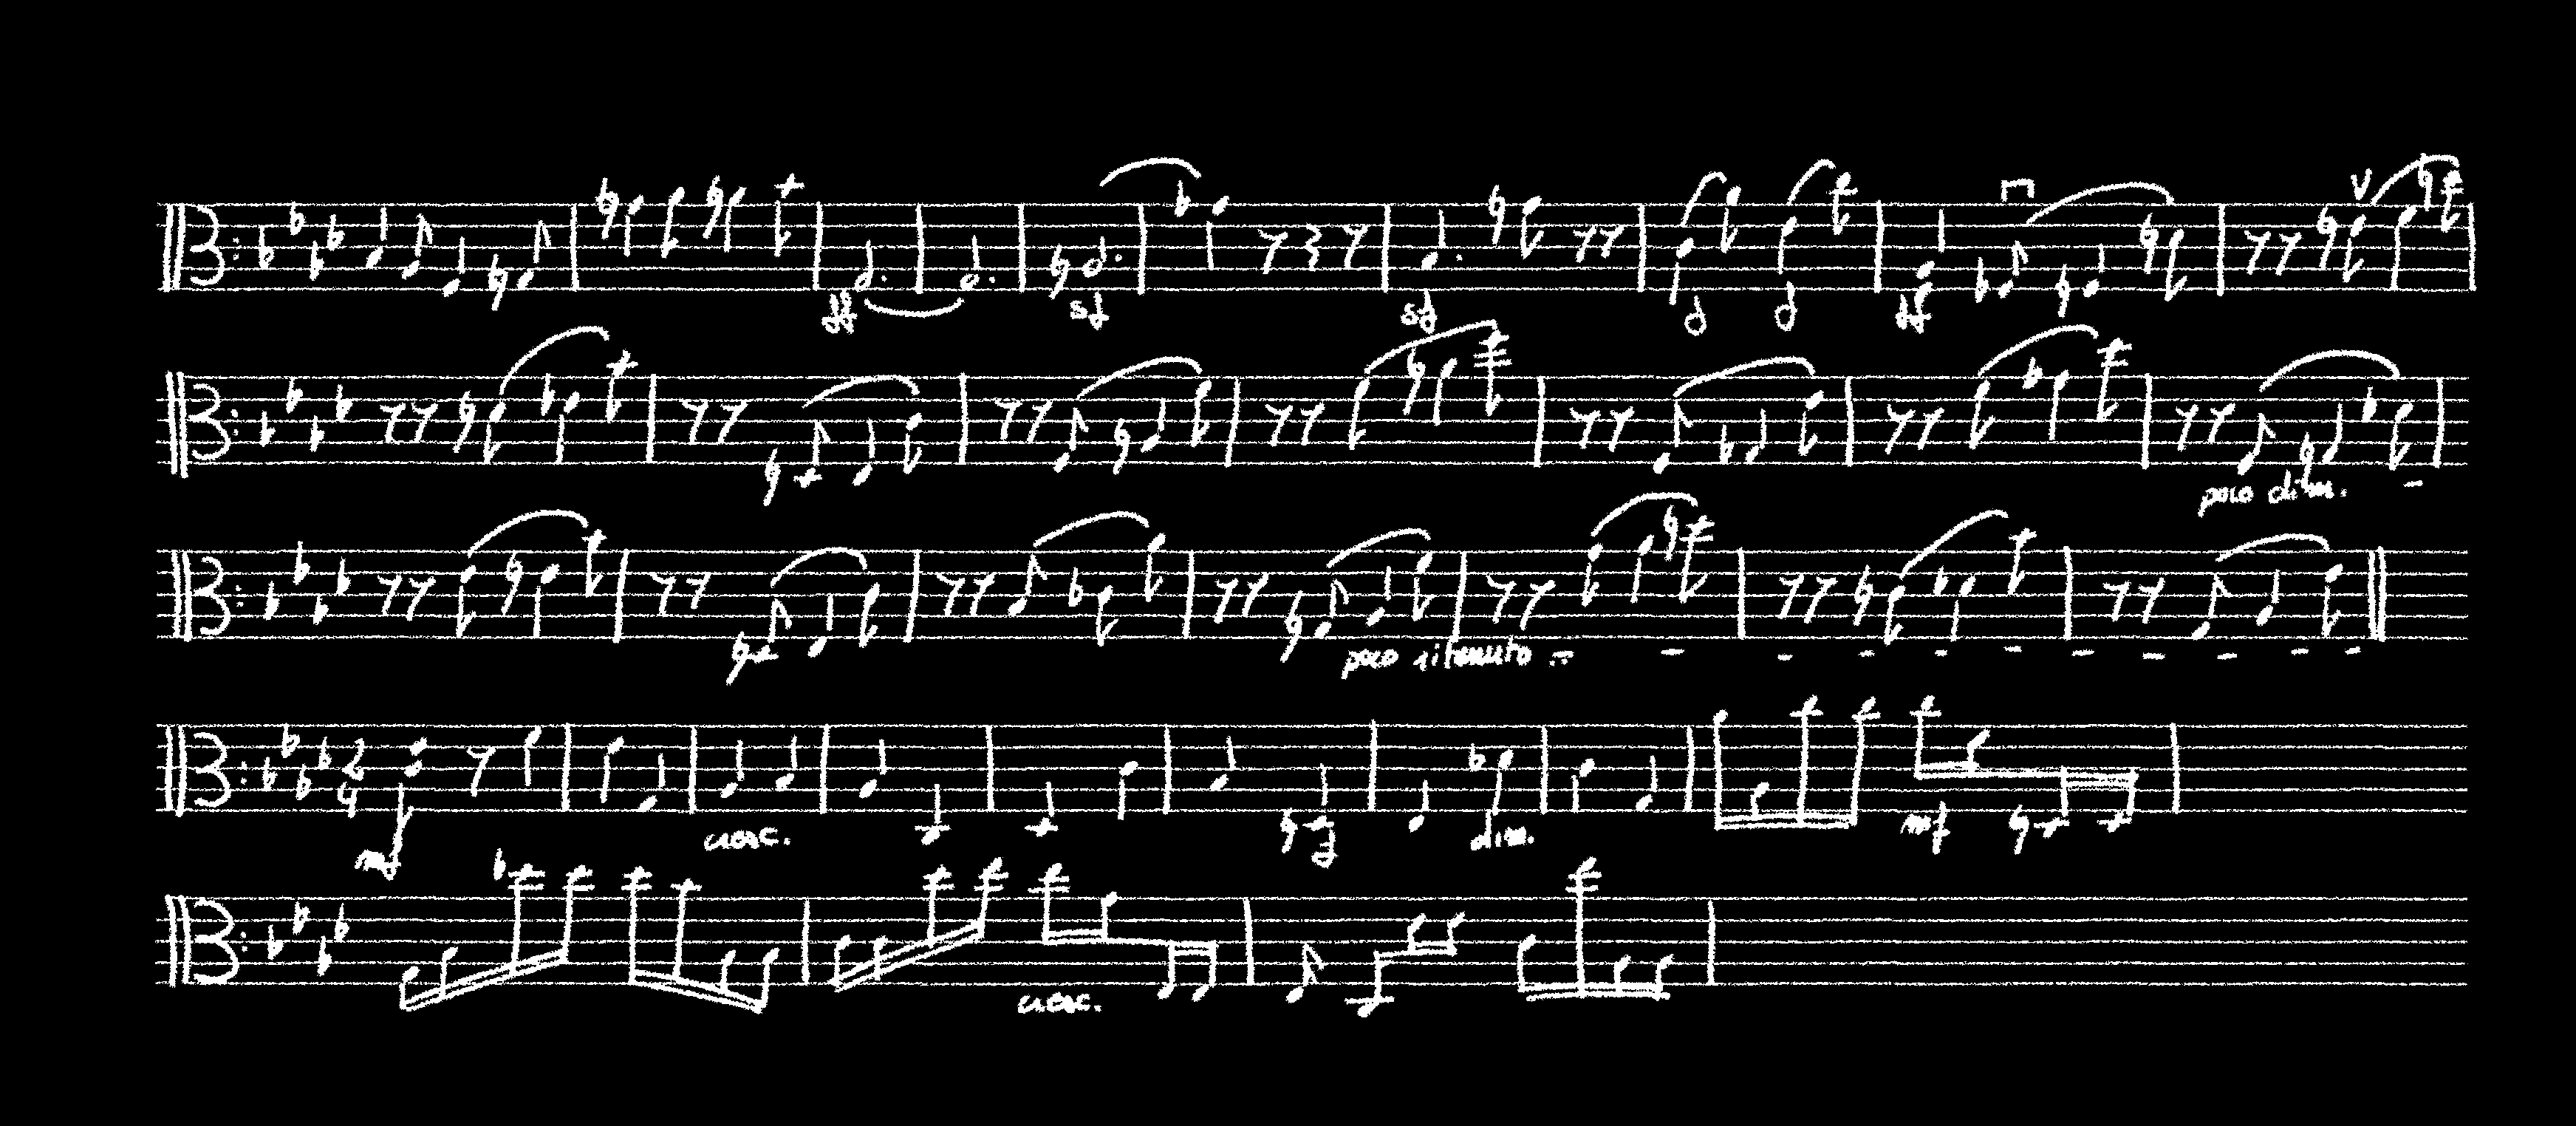 ff sf sf ff
poco dim. -
poco ritenuto - - - - - - - - - - -
2 4
mf cresc. dim. mf
cresc.